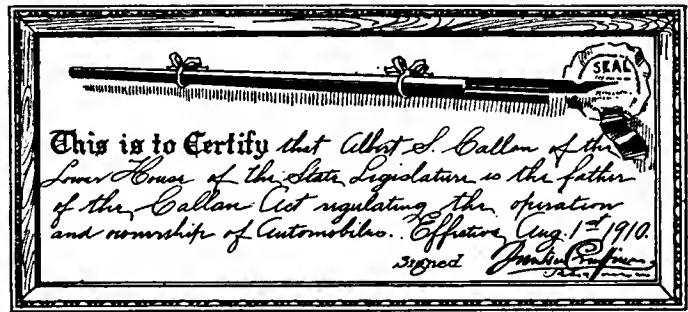 SEAL
This is to Certify that Albert S. Callan of the
Lower House of the State Legislature is the father
of the Callan Act regulating the operation
and ownership of Automobiles. Effective Aug. 1st 1910.
Signed